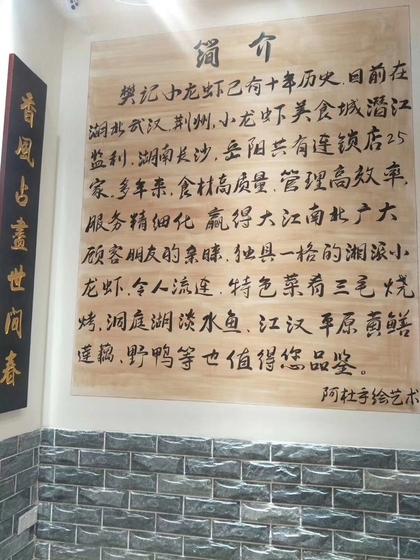 简介
樊记小龙虾已有十年历史.目前在
湖北武汉,荆州,小龙虾美食城潜江
监利,湖南长沙,岳阳共有连锁店25
家,多年来,食材高质量,管理高效率,
服务精细化 赢得大江南北广大
顾客朋友的亲睐,独具一格的湘派小
龙虾,令人流连,特色菜肴三毛烧
烤,洞庭湖淡水鱼,江汉平原黄鳝
莲藕,野鸭等也值得您品鉴。
阿杜手绘艺术
香风占尽世间春